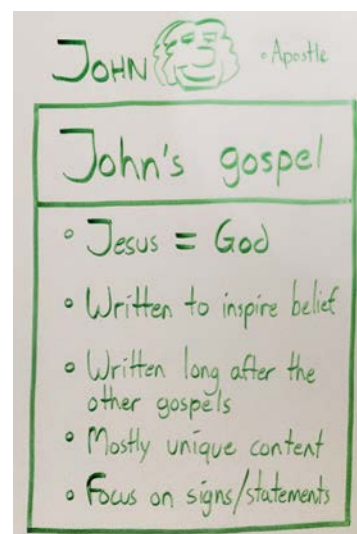 JOHN
• Apostle
John's gospel
• Jesus = God
• Written to inspire belief
• Written long after the
other gospels
• Mostly unique content
• Focus on signs/statements